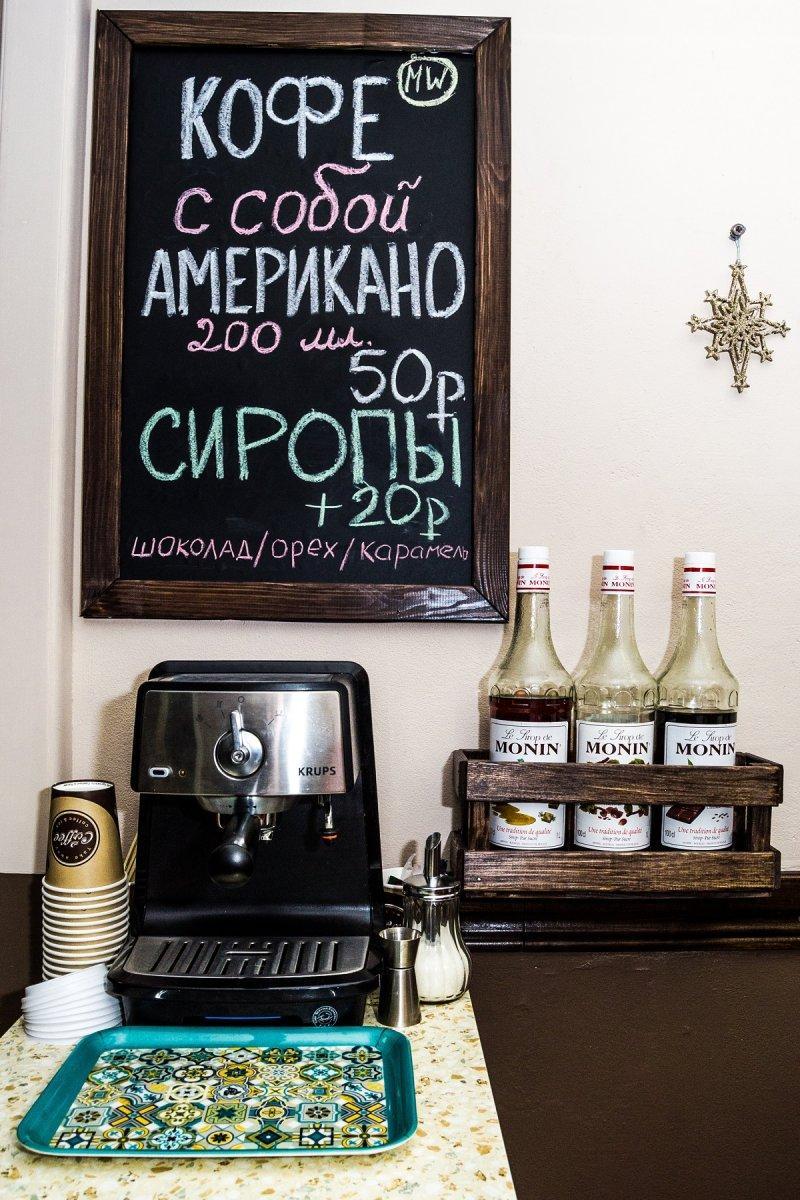 MW
КОФЕ
с собой
АМЕРИКАНО
200 мл.
50р
СИРОПЫ
+20р
шоколад/орех/карамель
KRUPS
Coffee
Le Sirop de
MONIN
Une tradition de qualité
Le Sirop de
MONIN
Une tradition de qualité
100cl
Le Sirop de
MONIN
Une tradition de qualité
100cl